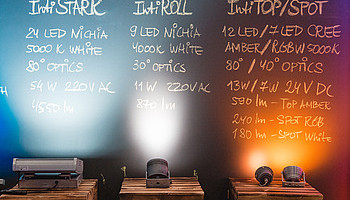 IntiSTARK
24 LED NICHIA
5000 K WHITE
80° OPTICS
54 W 220 V AC
4550 lm
IntiROLL
9 LED NICHIA
4000K WHITE
30° OPTICS
11 W 220V AC
870 lm
IntiTOP/SPOT
12 LED/7 LED CREE
AMBER/RGBW5000K
80°/40° OPTICS
13W/7W 24V DC
530 lm - TOP AMBER
240 lm - SPOT RGB
180 lm - SPOT WHITE
H